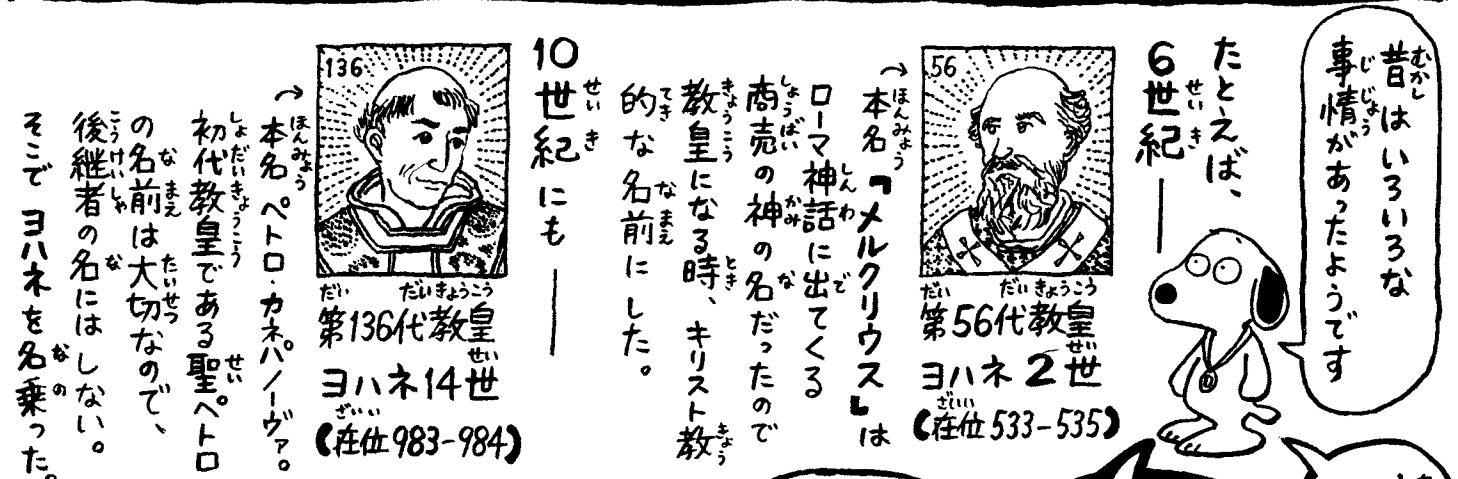 昔はいろいろな
事情があったようです
たとえば、
6世紀――
56
第56代教皇
ヨハネ2世
(在位533-535)
→本名『メルクリウス』は
ローマ神話に出てくる
商売の神の名だったので
教皇になる時、キリスト教
的な名前にした。
10世紀にも――
136
第136代教皇
ヨハネ14世
(在位983-984)
→本名 ペトロ・カネパノーヴァ。
初代教皇である聖ペトロ
の名前は大切なので、
後継者の名にはしない。
そこでヨハネを名乗った。